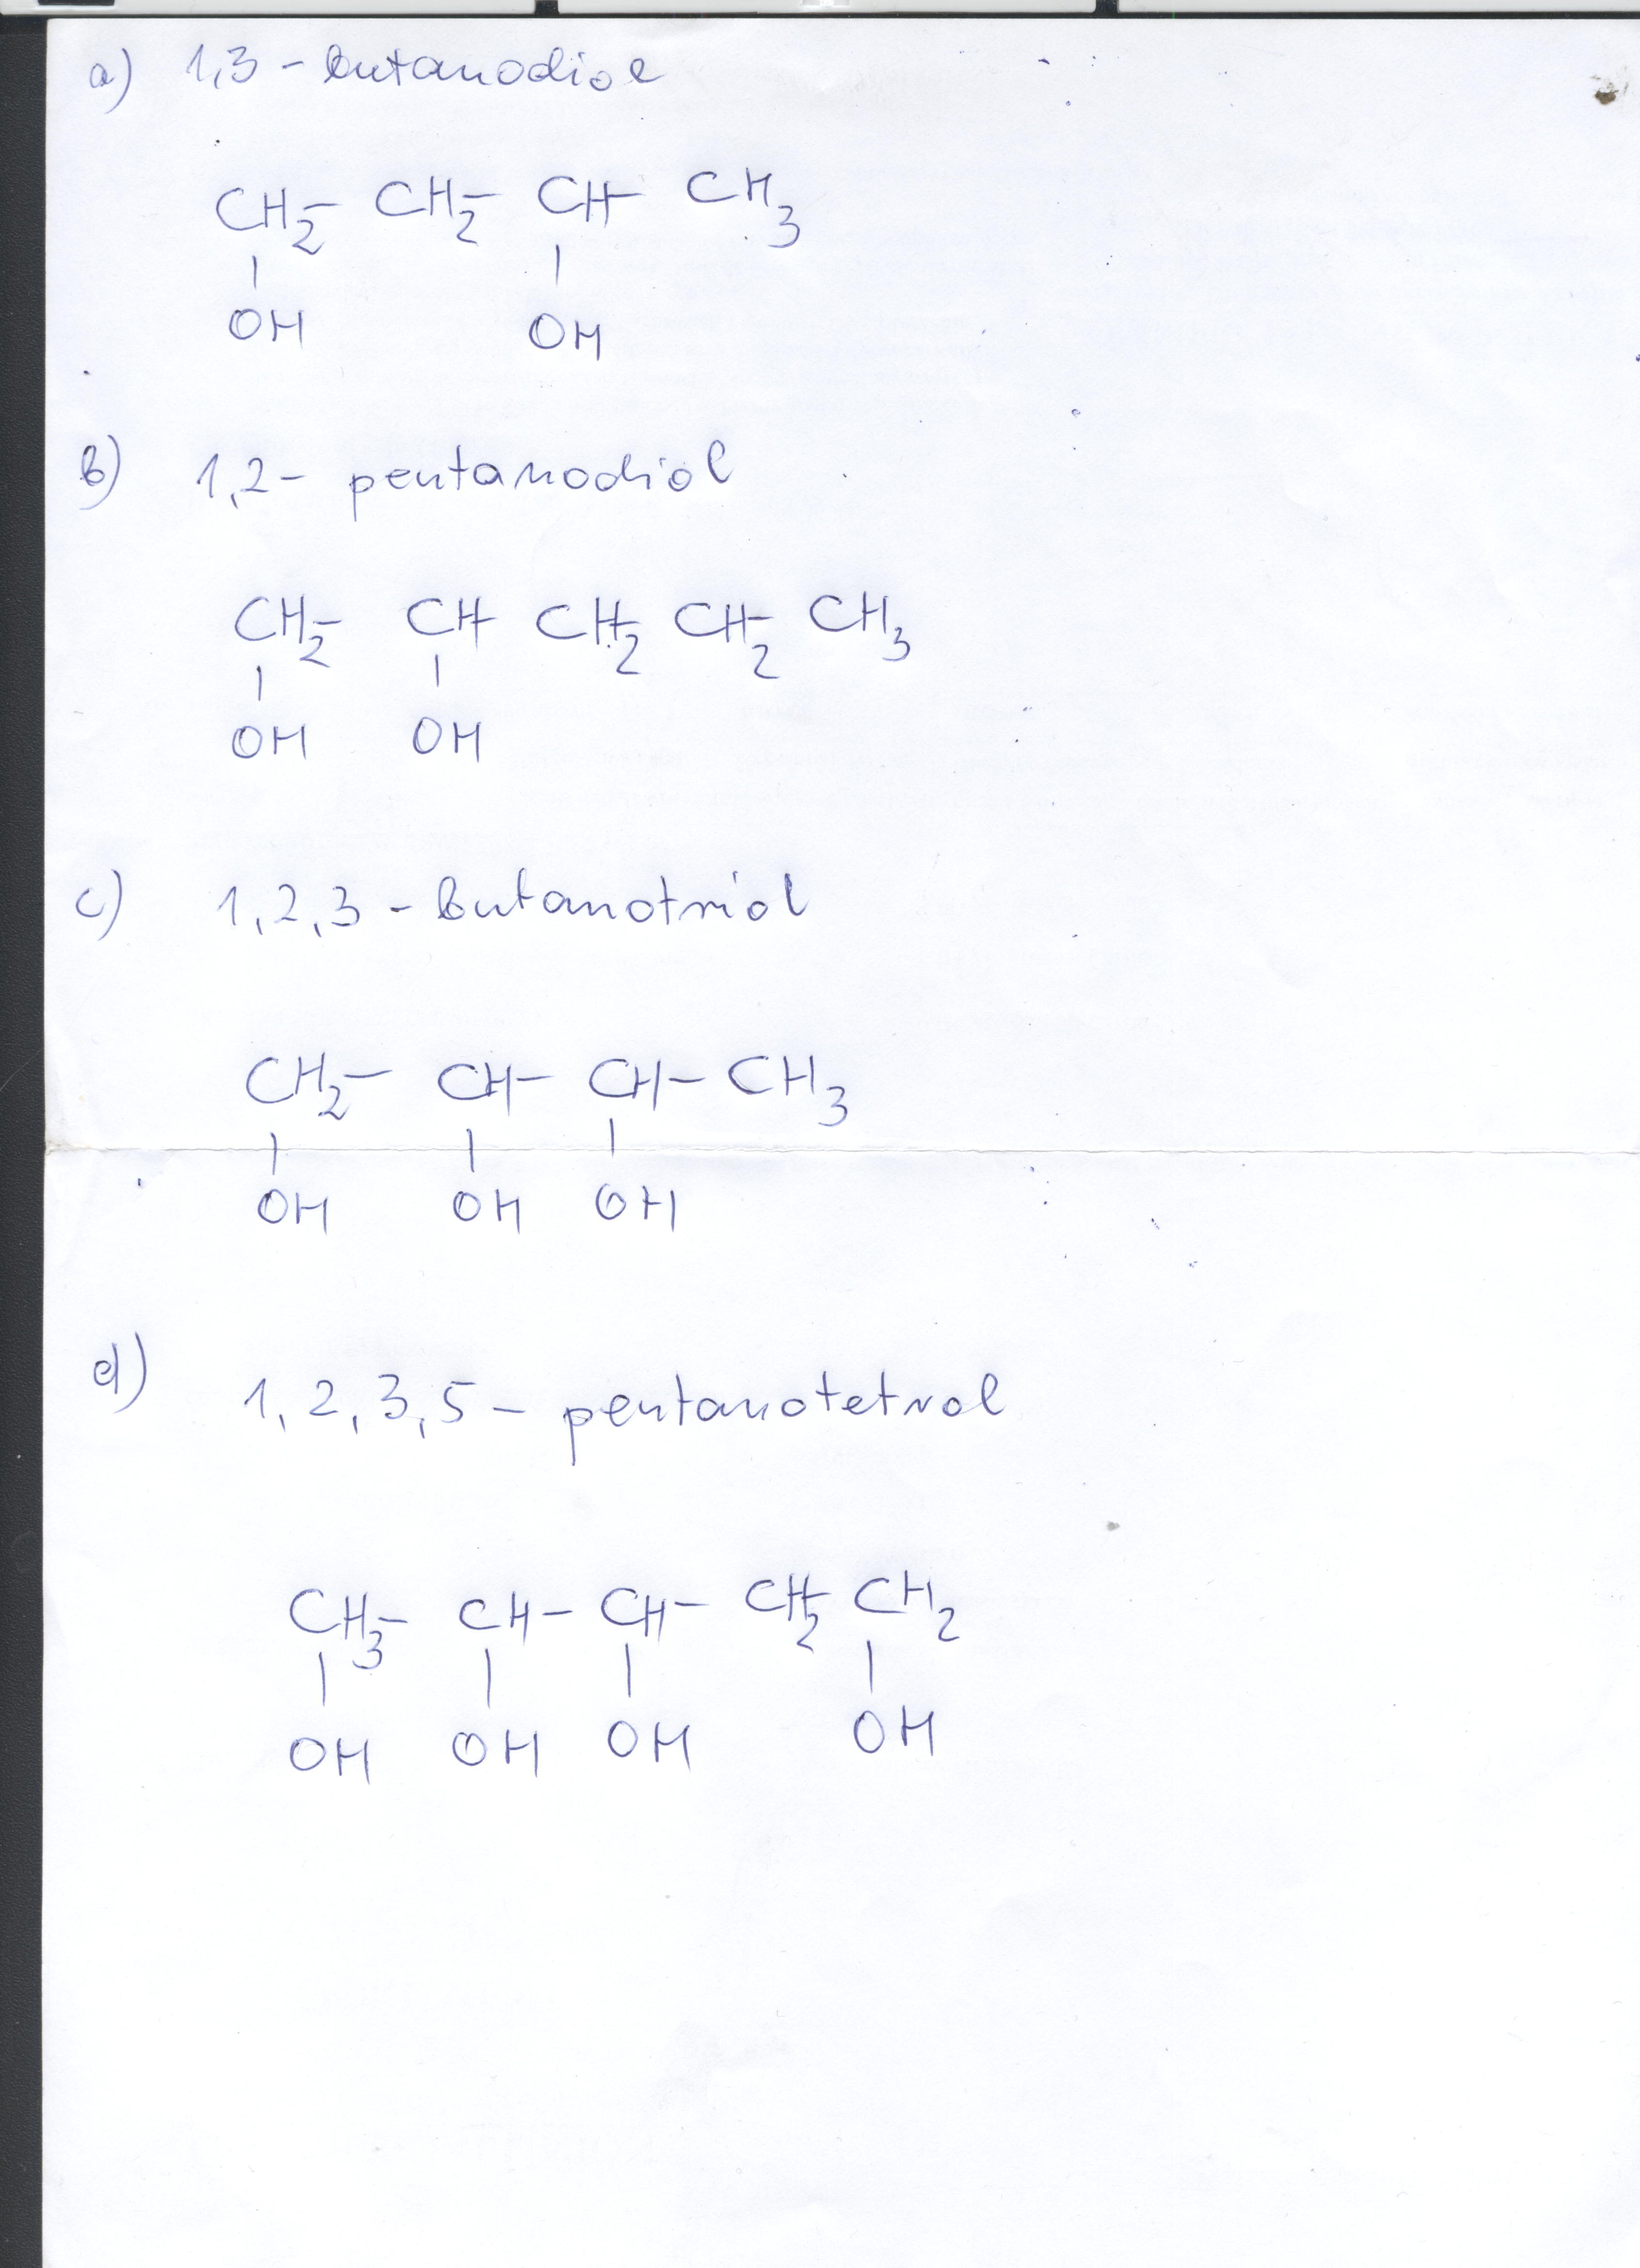 a) 1,3 - butanodiol
CH2- CH2- CH- CH3
| |
OH OH
b) 1,2- pentanodiol
CH2- CH- CH2- CH2- CH3
| |
OH OH
c) 1,2,3 - butanotriol
CH2- CH- CH- CH3
| | |
OH OH OH
d) 1,2,3,5 - pentanotetrol
CH3- CH- CH- CH2- CH2
| | | |
OH OH OH OH